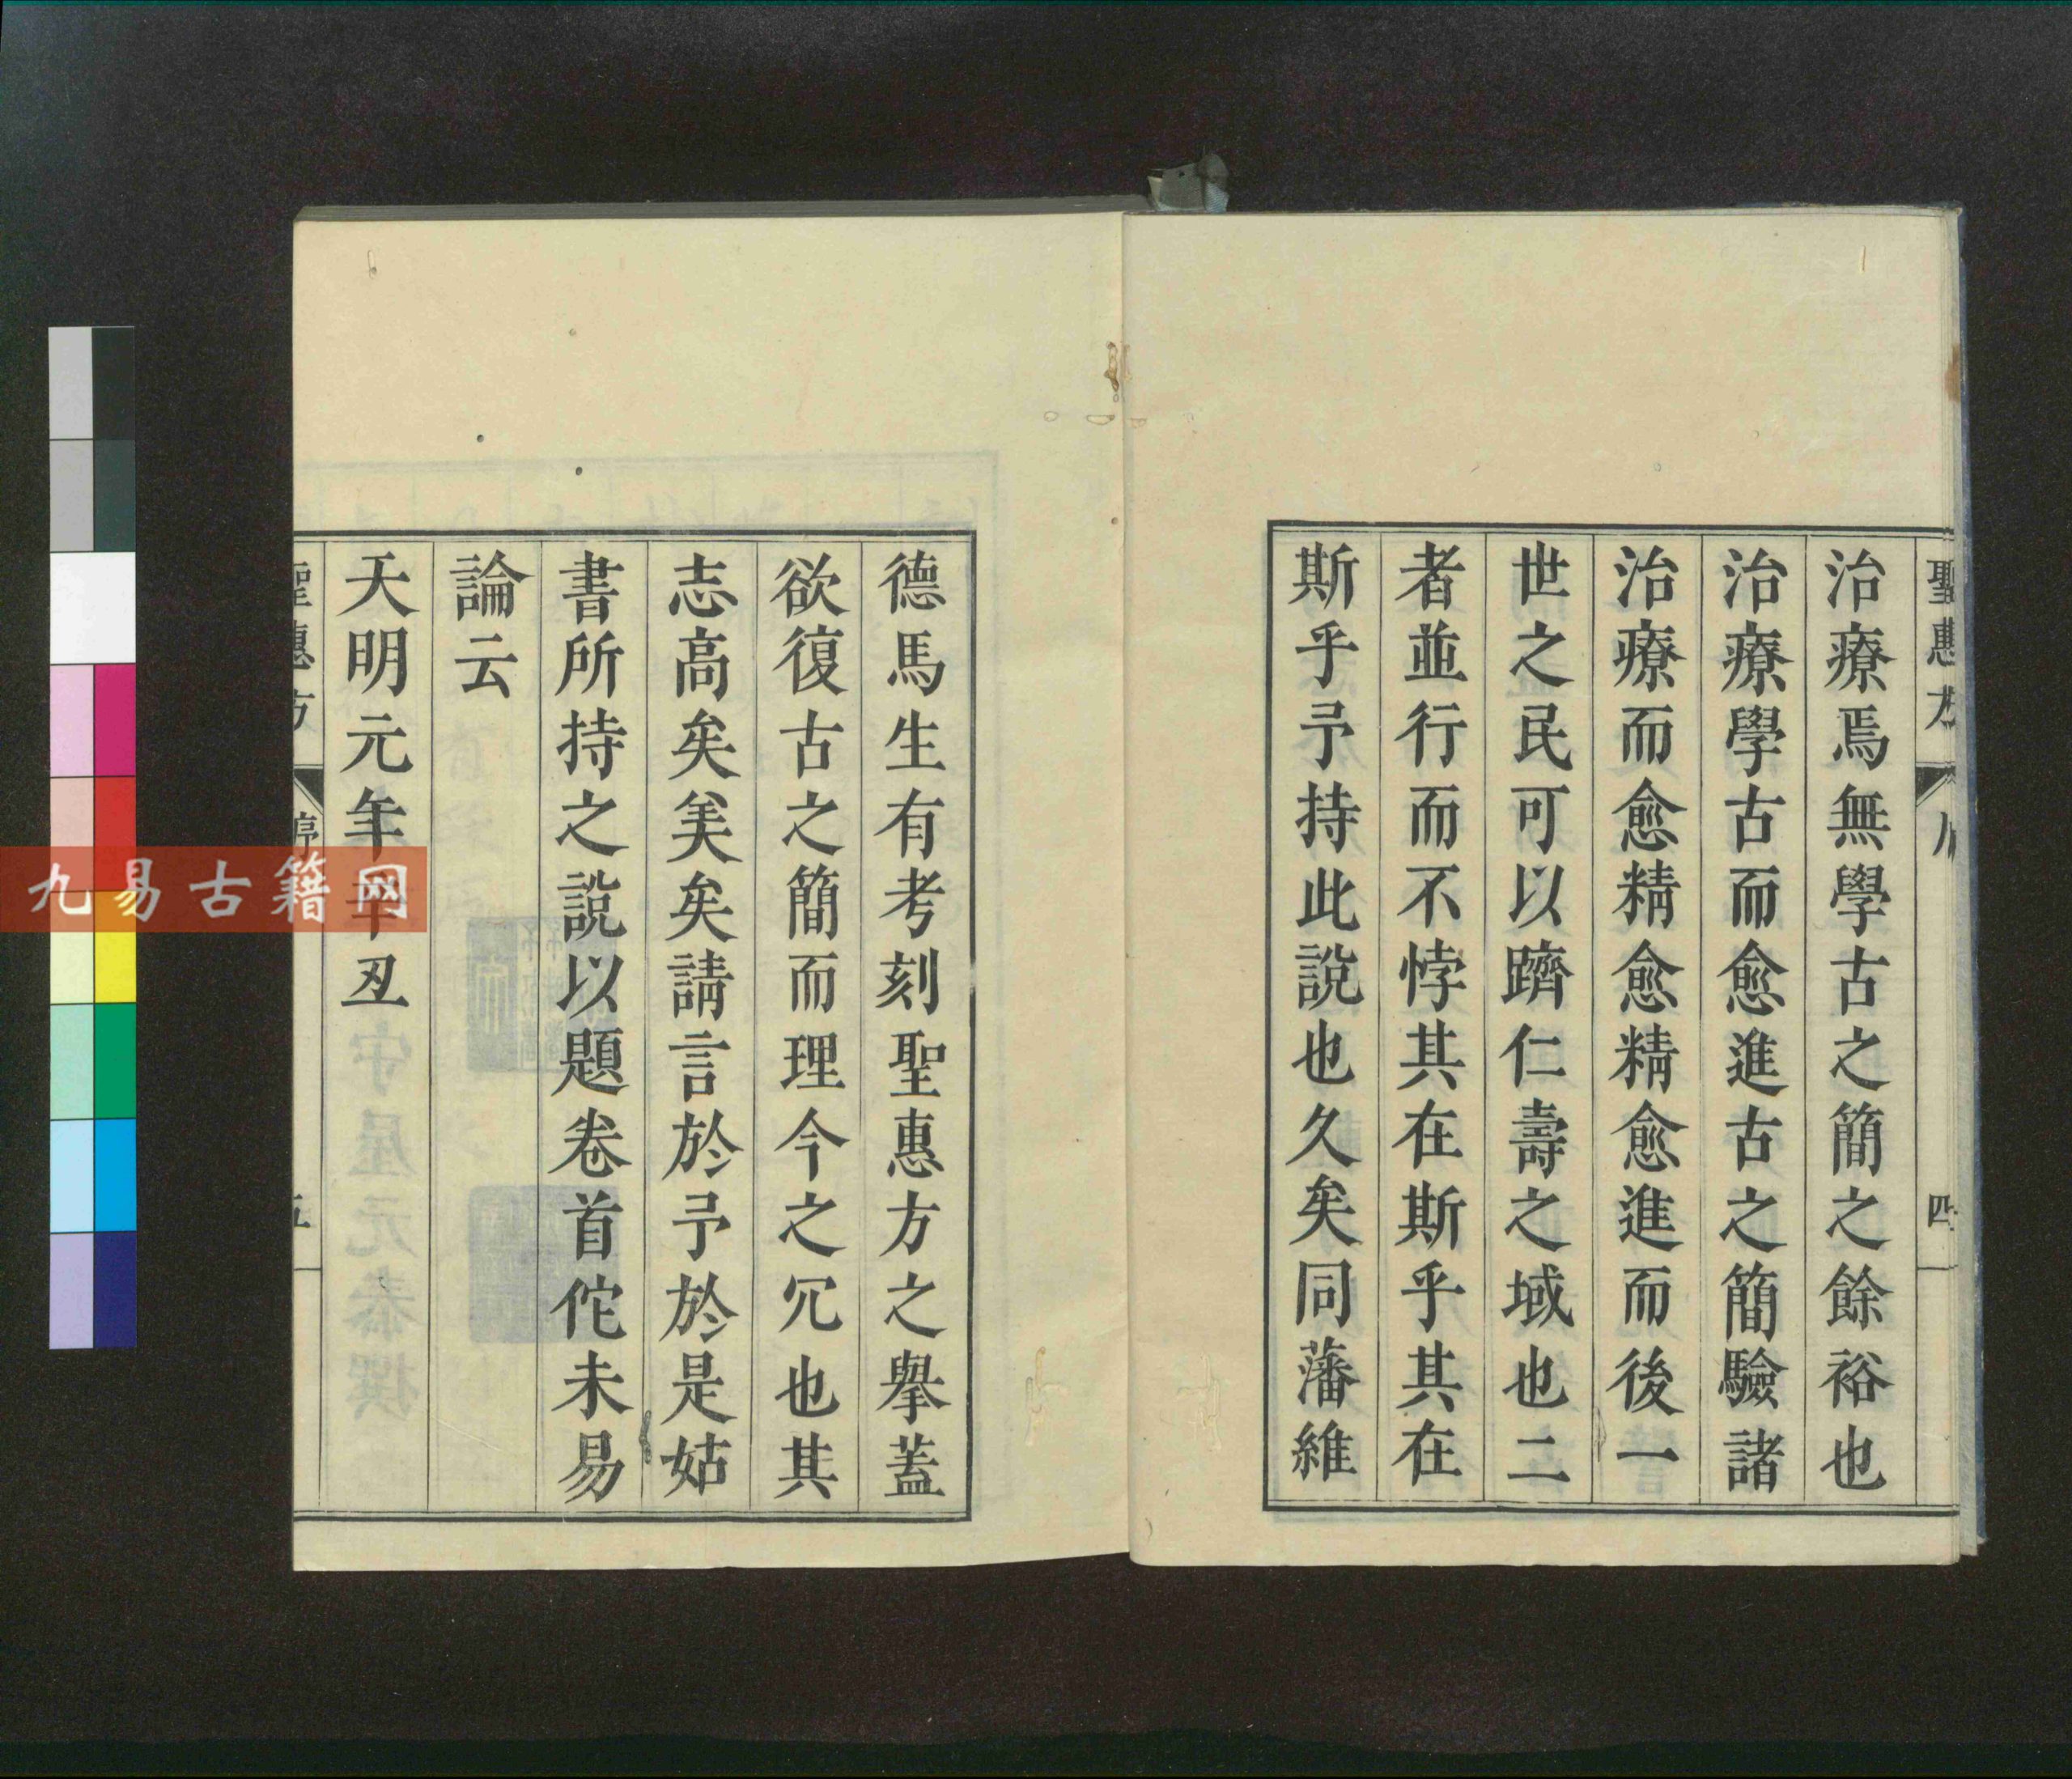 聖惠方
四
治療焉無學古之簡之餘裕也
治療學古而愈進古之簡驗諸
治療而愈精愈精愈進而後一
世之民可以躋仁壽之域也二
者並行而不悖其在斯乎其在
斯乎予持此說也久矣同藩維
德馬生有考刻聖惠方之舉蓋
欲復古之簡而理今之冗也其
志高矣美矣請言於予於是姑
書所持之說以題卷首佗未易
論云
天明元年辛丑
聖惠方
五
九易古籍网